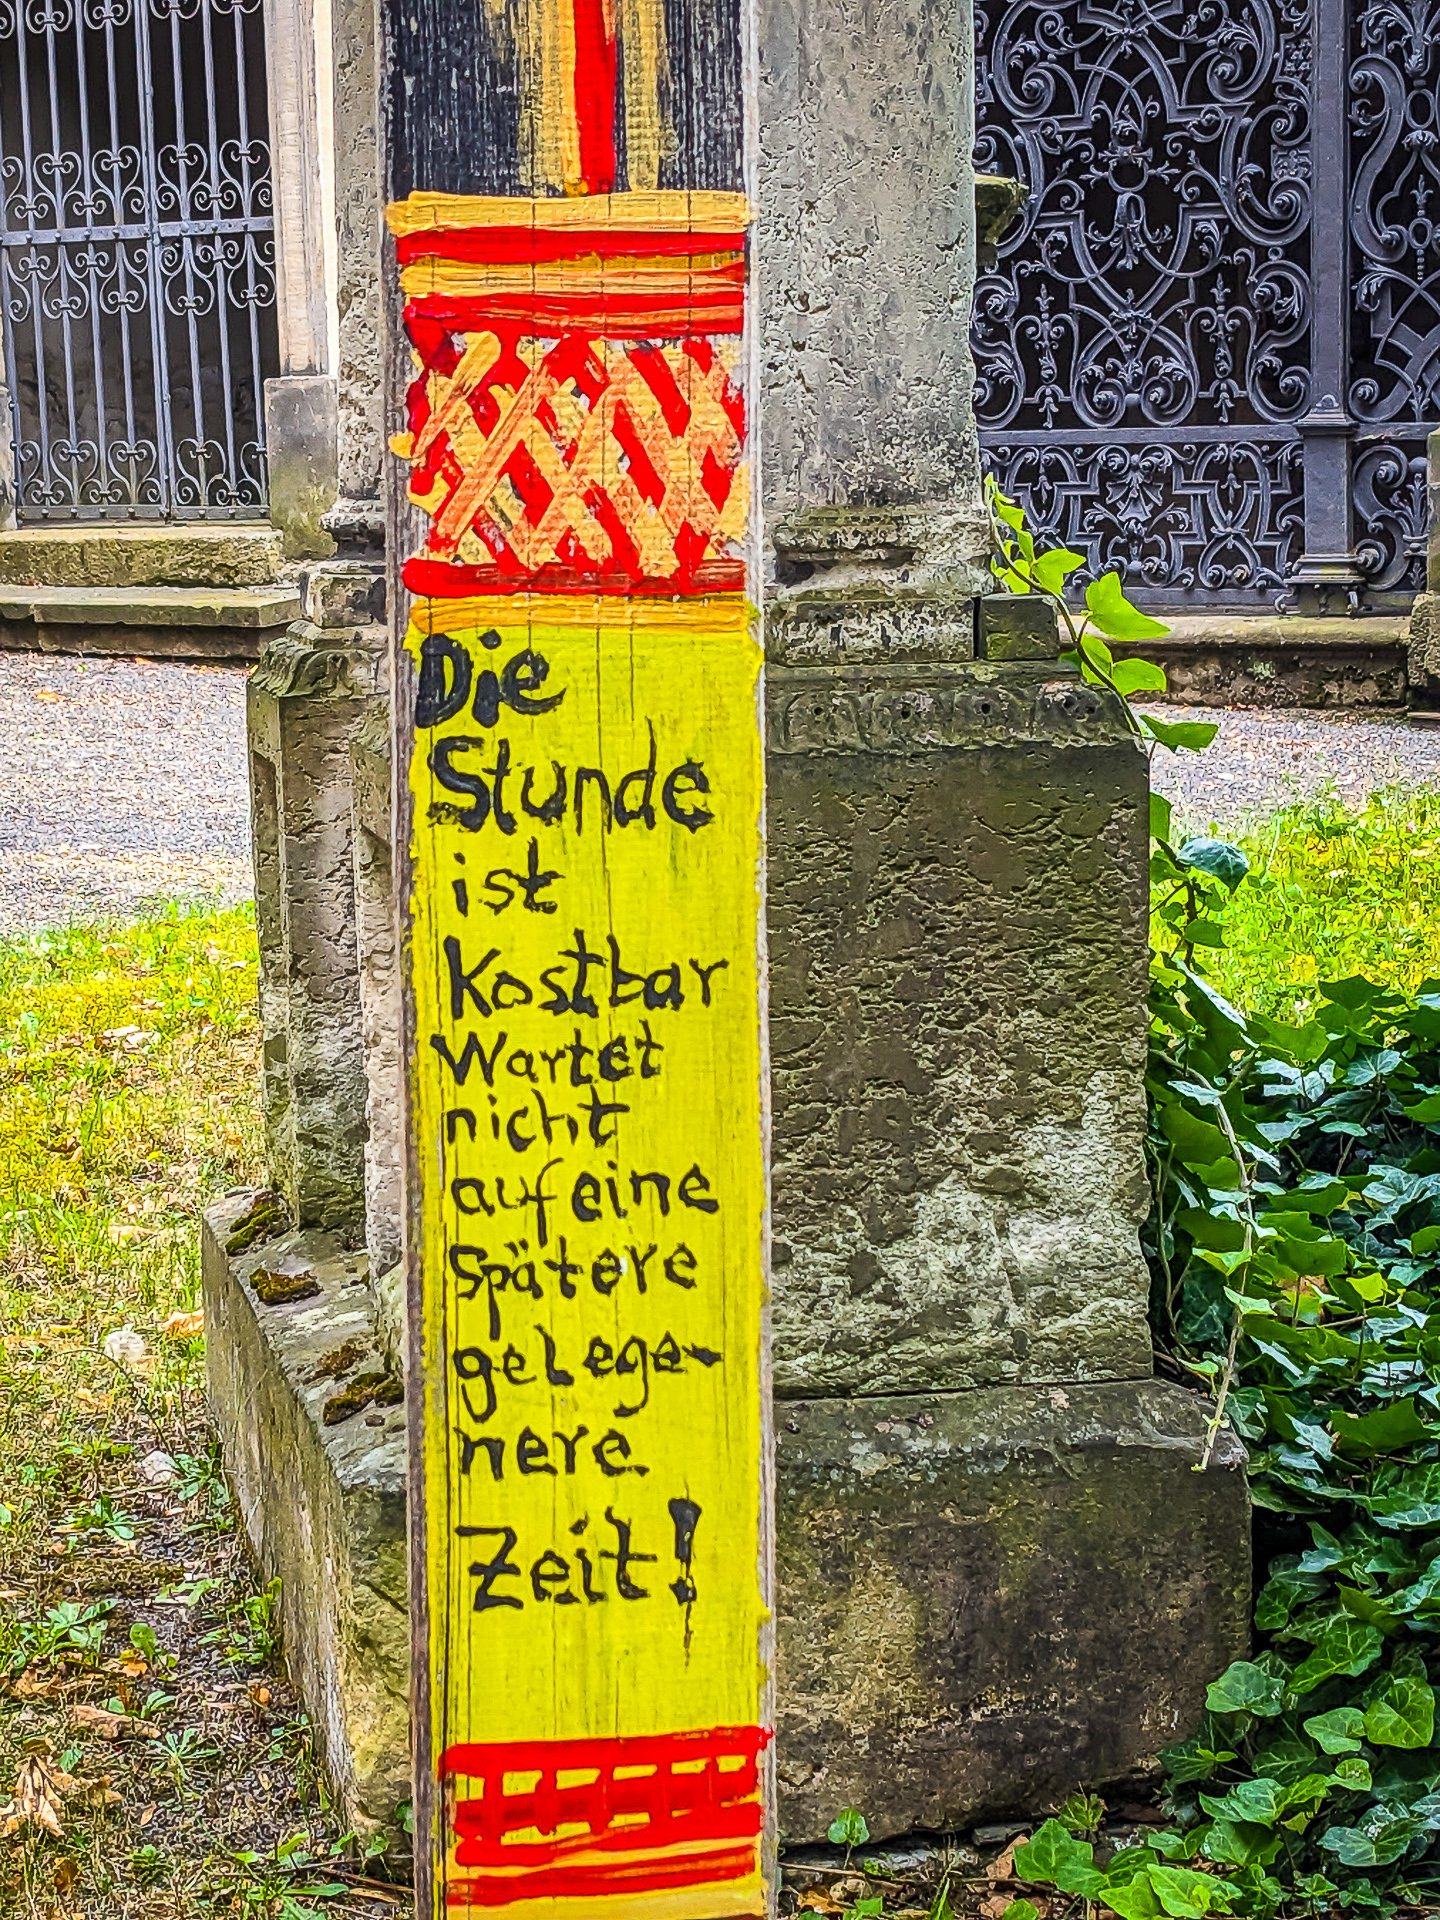 Die
Stunde
ist
Kostbar
Wartet
nicht
auf eine
Spätere
gelege-
nere
Zeit!